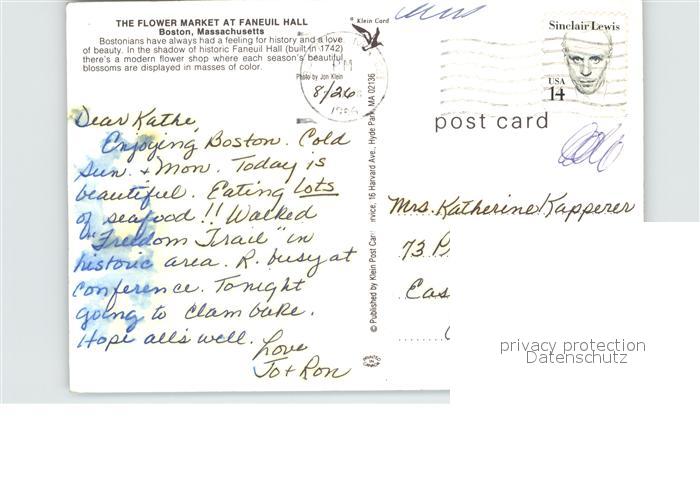 THE FLOWER MARKET AT FANEUIL HALL
Boston, Massachusetts
Bostonians have always had a feeling for history and a love
of beauty. In the shadow of historic Faneuil Hall (built in 1742)
there's a modern flower shop where each season's beautiful
blossoms are displayed in masses of color.
Klein Card
Photo by Jon Klein
PM
8/26
Dear Kathe,
Enjoying Boston. Cold
Sun. + Mon. Today is
beautiful. Eating Lots
of seafood!! Walked
"Freedom Trail" in
historic area. R. busy at
Conference. Tonight
going to Clam bake.
Hope all's well.
Love
Jo + Ron
© Published by Klein Post Card Service, 16 Harvard Ave., Hyde Park, MA 02136
Sinclair Lewis
USA
14
post card
Mrs. Katherine Kapperer
73 P
Eas
privacy protection
Datenschutz